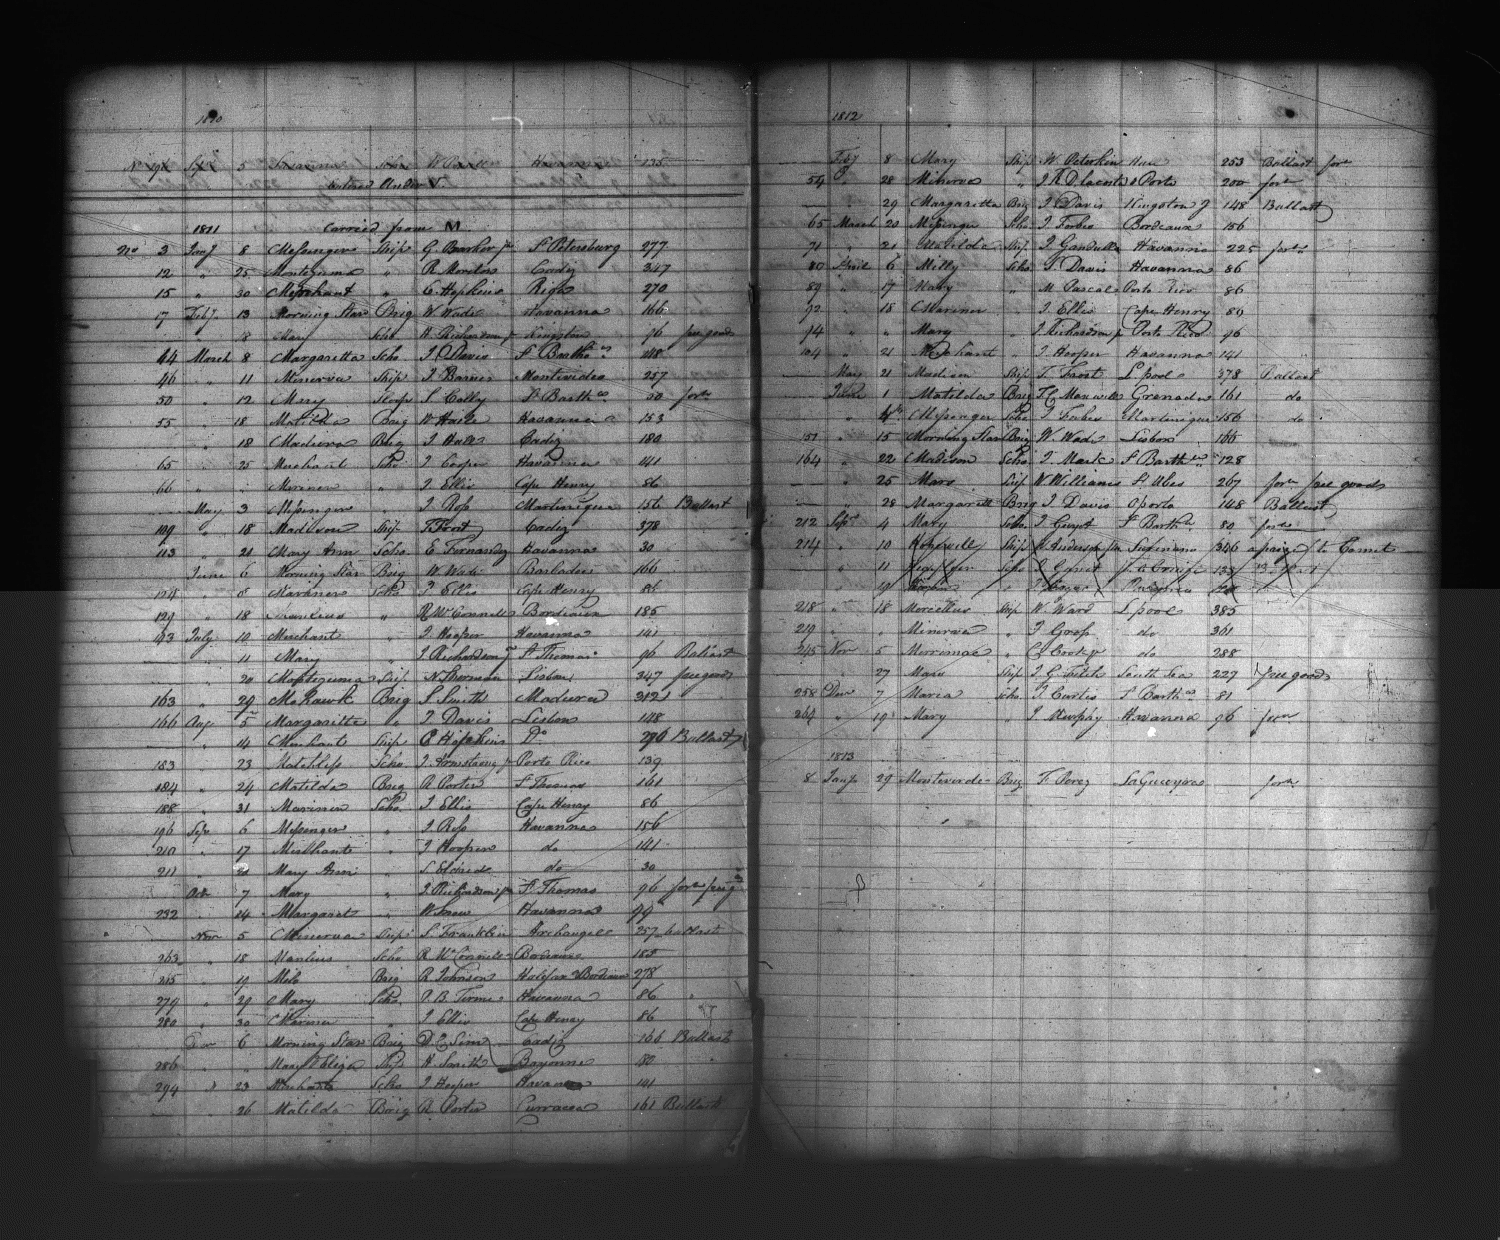 1810
Sepr 5 Scho 135
entered Under V.
1811 Carried from M
No 3 Jany 8 Messenger Ship G Barker jr St Petersburg 277
12 " 25 Montezuma " R Cadiz 347
15 " 30 Merchant " C. Hopkins Riga 270
17 Feby. 13 Morning Star Brig W Wade Havanna 166
18 Mary Scho W Richardson jr Kingston 96 free goods
44 March 8 Margaretta Scho. J Davis St Bartho's 148
46 " 11 Minerva Ship J Barnes Montevideo 257
50 " 12 Mary Sloop S Colly St Barths 50 forn
55 " 18 Matilda Brig W Haile Havanna 153
" 18 Madeira Brig J Hall Cadiz 180
65 " 25 Merchant Scho J Cooper Havanna 141
66 " " Mariner " J Ellis Cape Henry 86
May 3 Messenger " J Ross Martinique 156 Ballast
109 " 18 Madison Ship T Frost Cadiz 378
113 " 21 Mary Ann Scho. E Fernandez Havanna 30
June 6 Morning Star Brig W Wade Barbadoes 166
124 " 8 Mariner Scho J Ellis Cape Henry 86
129 " 18 Manlius " R McConnell Bordeaux 185
143 July 10 Merchant " J Hooper Havanna 141
" 11 Mary " J Richardson jr St Thomas 96 Ballast
20 Montezuma Ship N Sherman Lisbon 347 free goods
163 " 29 Mohawk Brig S Smith Madeira 312
166 Aug 5 Margaretta " J Davis Lisbon 148
" 14 Merchant Ship C Hopkins Do 270 Ballast
183 " 23 Matchless Scho. J Armstrong jr Porto Rico 139
184 " 24 Matilda Brig A Porter St Thomas 161
188 " 31 Mariner Scho. J Ellis Cape Henry 86
196 Sepr 6 Messenger " J Ross Havanna 156
210 " 17 Merchant " J Hooper do 141
211 " 21 Mary Ann " S Eldride do 30
Oct 7 Mary " J Richardson jr St Thomas 96 forn
232 " 14 Margaret " W Snow Havanna 99
Nov 5 Minerva Ship S Franklin Archangel 257 ballast
263 " 18 Manlius Scho R McConnell Bordeaux 185
265 " 19 Meto Brig R Johnson Halifax & Bordeaux 278
279 " 29 Mary Scho. Havanna 86
280 " 30 Mariner " J Ellis Cape Henry 86
Dec 6 Morning Star Brig D C Sims Cadiz 166 Ballast
286 " " Mary & Eliza W Smith Bayonne 80
294 " 23 Merchant Scho J Hooper Havanna 141
26 Matilda Brig A Porter Curracoa 161 Ballast
1812
Feby 8 Mary Ship W Peterkin 253 Ballast forn
54 " 28 Minerva " Porto 200 forn
29 Margaretta Brig J Davis Kingston J 148 Ballast
65 March 20 Messenger Scho. J Forbes Bordeaux 156
71 " 21 Matilda Ship J Havanna 225 forn
80 April 6 Milly Scho. J Davis Havanna 86
89 " 17 Mary " M Pascal Porto Rico 86
92 " 18 Mariner " J Ellis Cape Henry 86
94 " " Mary " J Richardson jr Porto Rico 96
104 " 21 Merchant " J Hooper Havanna 141
May 21 Madison Ship T Frost L pool 378 Ballast
June 1 Matilda Brig Grenada 161 do
" 4th Messenger Scho. J Forbes Martinique 156 do
151 " 15 Morning Star Brig W. Wade Lisbon 166
164 " 22 Madison Scho. J Mark St Barths 128
" 25 Mars Ship W Williams St Ubes 267 forn free goods
28 Margarett Brig J Davis Oporto 148 Ballast
212 Sepr 4 Mary Scho. J Guyot St Barths 80 forn
214 " 10 Hopewell Ship W Anderson Surinam 346 a prize to Comet
" 11 Scho
19
218 " 18 Marcellus Ship W. Ward L pool 385
219 " " Minerva " J Goop do 361
245 Nov 5 Merrimac " do 288
" 27 Mars Ship J. G. South Sea 227 free goods
258 Decr 7 Maria Scho. J Curtis St Barths 81
264 " 19 Mary " J Murphy Havanna 96 forn
1813
8 Jany 29 Monteverde Brig F Perez LaGuayra forn